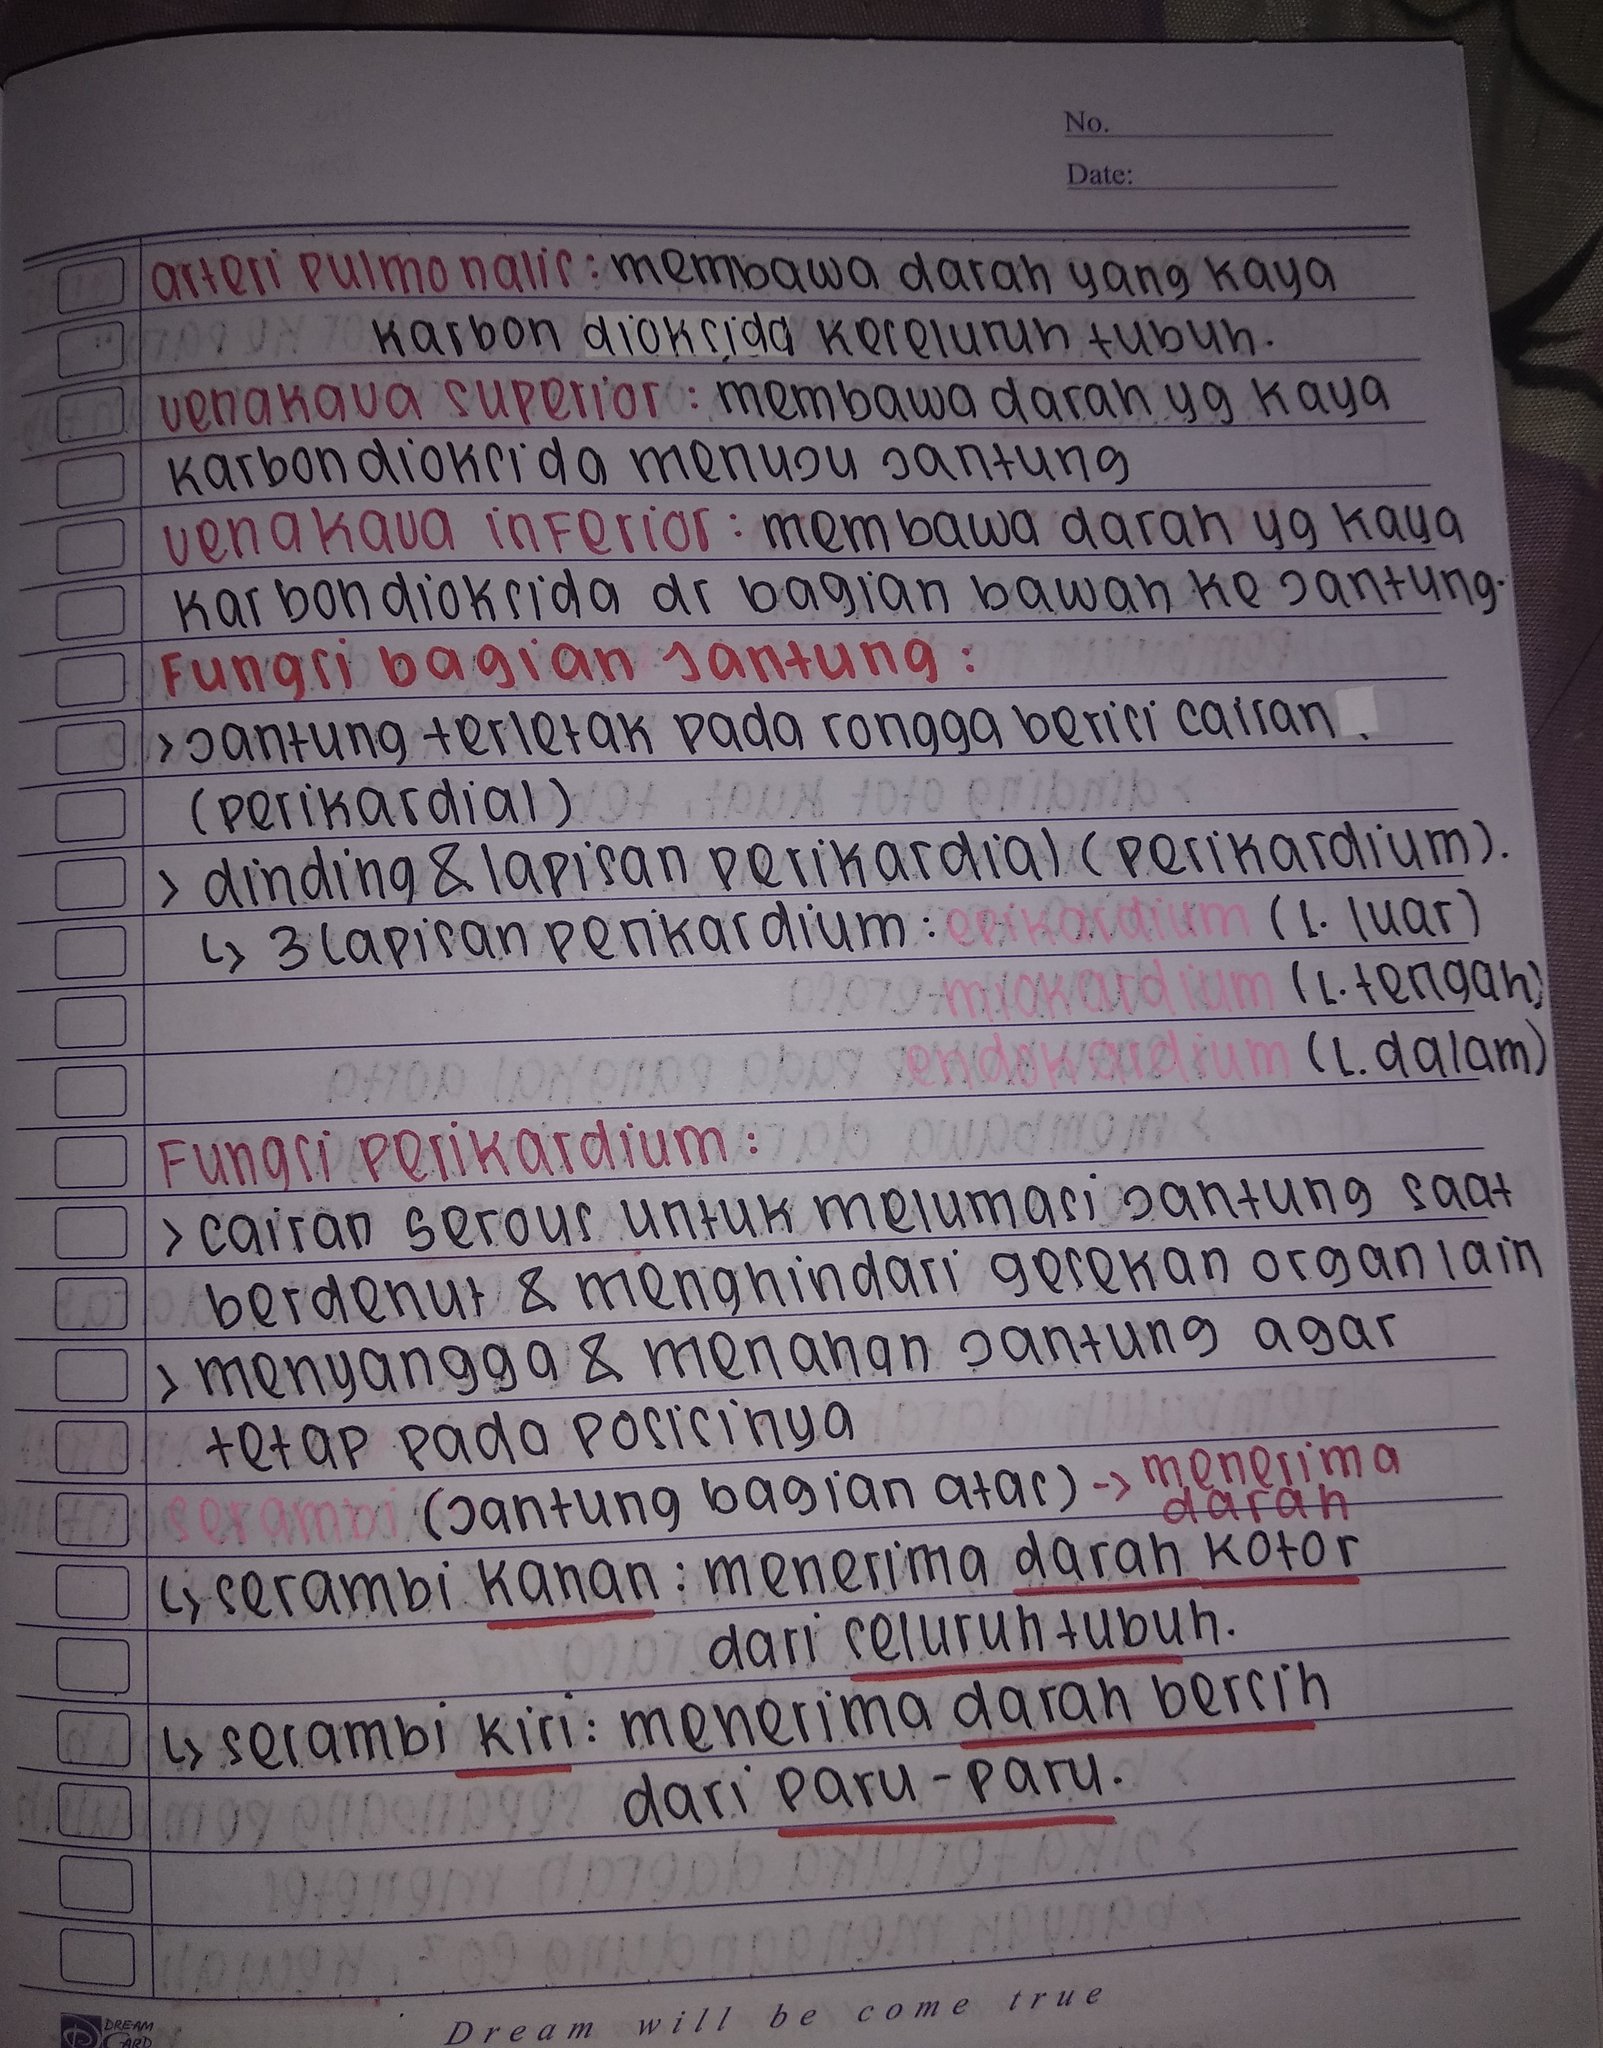 No.
Date:
arteri pulmonalis : membawa darah yang kaya
karbon dioksida keseluruh tubuh.
venakava superior : membawa darah yg kaya
karbondioksida menuju jantung
venakava inferior : membawa darah yg kaya
karbondioksida dr bagian bawah ke jantung.
Fungsi bagian jantung :
> jantung terletak pada rongga berisi cairan
(perikardial)
> dinding & lapisan perikardial (perikardium).
↳ 3 lapisan perikardium : epikardium (L. luar)
miokardium (L. tengah)
endokardium (L. dalam)
Fungsi perikardium :
> cairan serous untuk melumasi jantung saat
berdenut & menghindari gesekan organ lain
> menyangga & menahan jantung agar
tetap pada posisinya
serambi (jantung bagian atas) -> menerima
darah
↳ serambi kanan : menerima darah kotor
dari seluruh tubuh.
↳ serambi kiri : menerima darah bersih
dari paru - paru.
Dream will be come true
DREAM
CARD